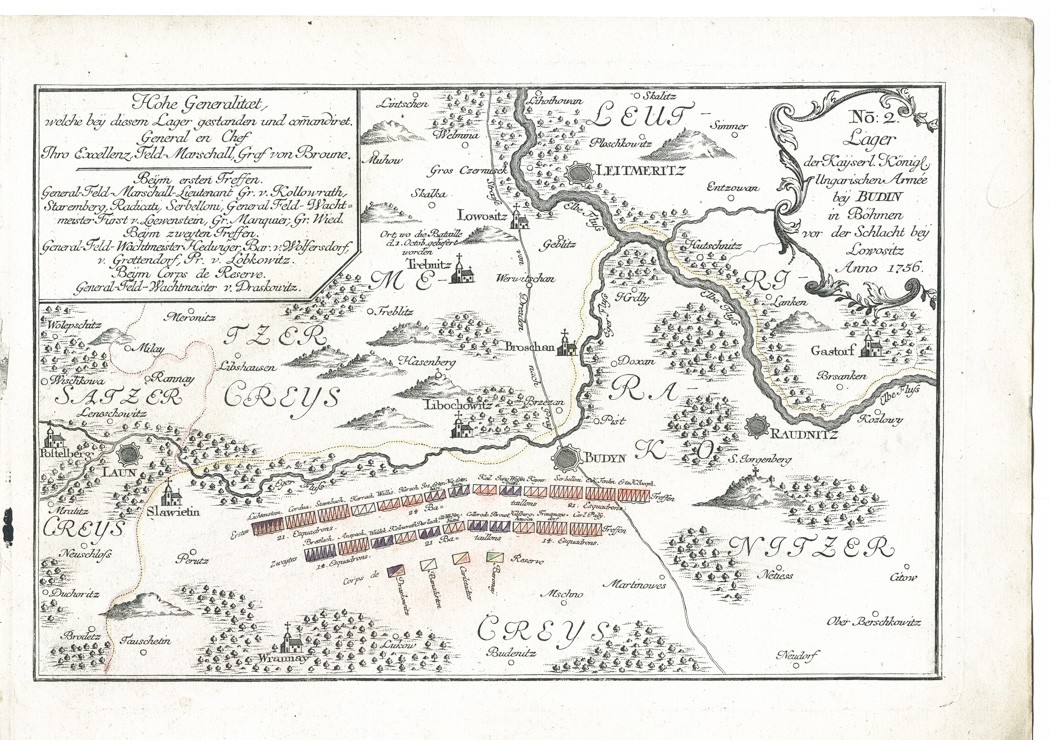 Hohe Generalitæt,
welche bey diesem Lager gestanden und com̄andiret.
General en Chef
Ihro Excellenz, Feld-Marschall, Graf von Broune.
Beÿm ersten Treffen.
General-Feld-Marschall-Lieutenant Gr. v. Kollowrath,
Staremberg, Radicati, Serbelloni, General Feld-Wacht=
meister Fürst v. Loewenstein, Gr. Manquier, Gr. Wied.
Beÿm zweyten Treffen.
General-Feld-Wachtmeister Hedwiger, Bar. v. Wolfersdorf,
v. Grottendorf, Pr. v. Lobkowitz.
Beÿm Corps de Reserve.
General-Feld-Wachtmeister v. Draskowitz.
No: 2.
Lager
der Kaÿserl. Königl.
Ungarischen Armée
bey BUDIN
in Böhmen
vor der Schlacht bey
Lowositz
Anno 1756.
Lintschen
Lchothowan
Skalitz
LEUT-
Welmina
Ploschkowitz
Simmer
Muhow
Gros Czernusek
LEITMERITZ
Skalka
Entzowan
Lowositz
Elbe Fluß
Ort, wo die Bataille
d. 1. Octob. geliefert
worden
Geblitz
Hutschnitz
Trebnitz
ME-
Werwitschan
RI-
von Dresden nach
Hrdly
Elbe Fluß
Lanken
Meronitz
Treblitz
Wolepschitz
TZER
Milay
Broschan
Gastorf
Libshausen
Hasenberg
Doxan
Wischkowa
Rannay
Brsanken
SATZER
CREYS
RA-
Elbe Fluß
Lenoschowitz
Libochowitz
Brzezan
Pist
Kozlowy
Postelberg
RAUDNITZ
LAUN
BUDYN
KO
S. Jorgenberg
Eger Fluß
Mralitz
Slawietin
CREYS
Erstes
21. Esquadrons.
24 Ba=
taillons
21. Esquadrons.
Treffen
Zweytes
14. Esquadrons.
21 Ba=
taillons
14. Esquadrons.
Treffen
Corps de
Reserve
NITZER
Neuschloß
Perutz
Netiess
Citow
Martinowes
Duchoritz
Mschno
Ober Berschkowitz
CREYS
Brodetz
Tauschetin
Wrannay
Lukow
Budenitz
Neudorf